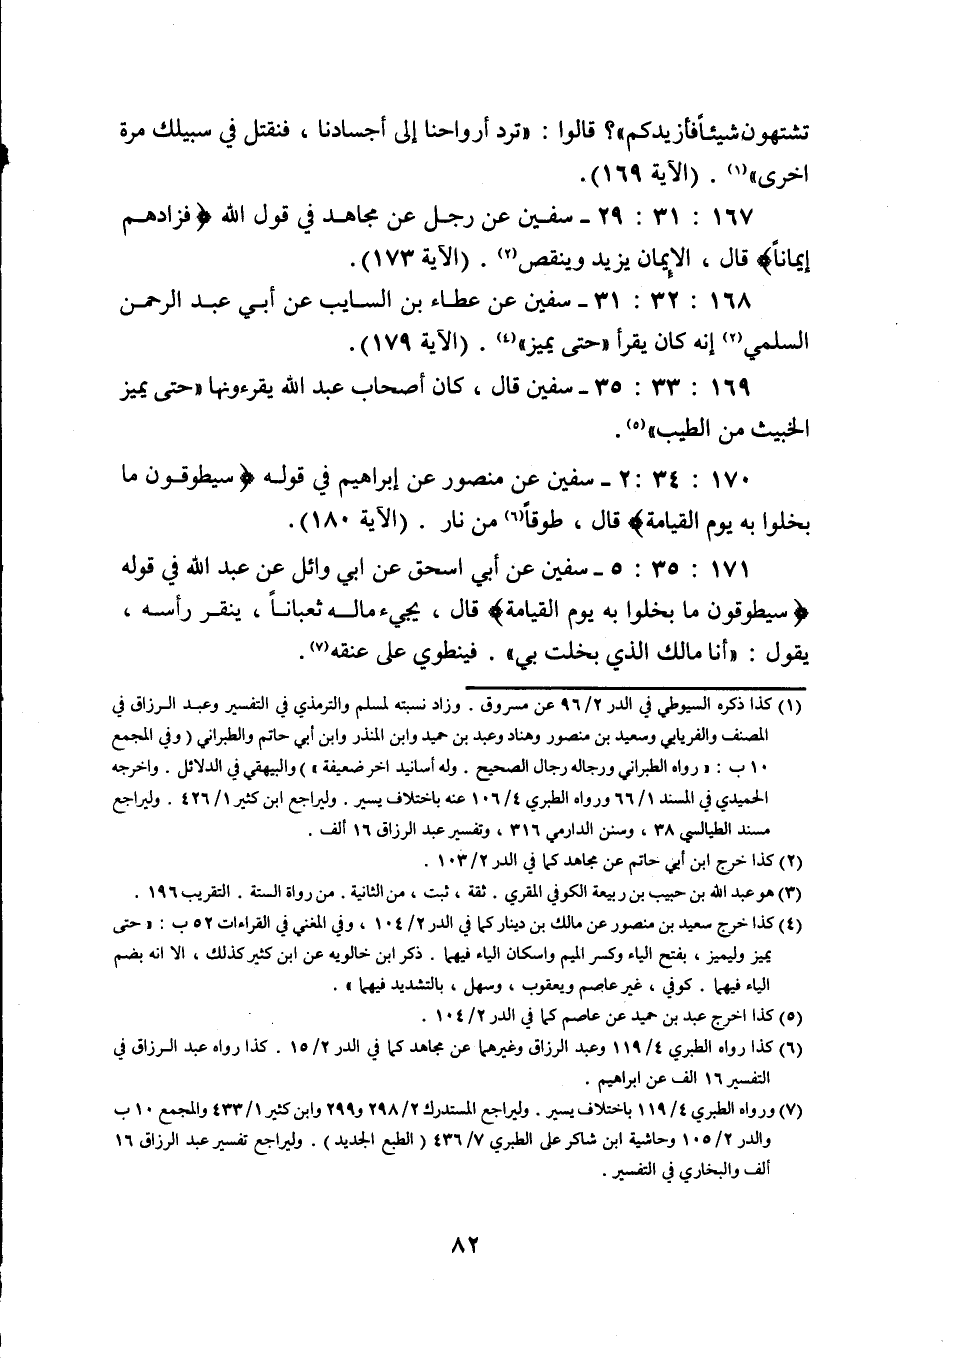 تشتهون شيئاً فأزيدكم»؟ قالوا : «ترد أرواحنا إلى أجسادنا ، فنقتل في سبيلك مرة
اخرى»(١) . (الآية ١٦٩).
١٦٧ : ٣١ : ٢٩ ـ سفين عن رجل عن مجاهد في قول الله ﴿فزادهم
إيماناً﴾ قال ، الإيمان يزيد وينقص(٢) . (الآية ١٧٣).
١٦٨ : ٣٢ : ٣١ ـ سفين عن عطاء بن السايب عن أبي عبد الرحمن
السلمي(٢) إنه كان يقرأ «حتى يميز»(٤) . (الآية ١٧٩).
١٦٩ : ٣٣ : ٣٥ ـ سفين قال ، كان أصحاب عبد الله يقرءونها «حتى يميز
الخبيث من الطيب»(٥) .
١٧٠ : ٣٤ : ٢ ـ سفين عن منصور عن إبراهيم في قوله ﴿سيطوقون ما
بخلوا به يوم القيامة﴾ قال ، طوقاً(٦) من نار . (الآية ١٨٠).
١٧١ : ٣٥ : ٥ ـ سفين عن أبي اسحق عن ابي وائل عن عبد الله في قوله
﴿سيطوقون ما بخلوا به يوم القيامة﴾ قال ، يجيء ماله ثعباناً ، ينقر رأسه ،
يقول : «أنا مالك الذي بخلت بي» . فينطوي على عنقه(٧) .
(١) كذا ذكره السيوطي في الدر ٢/ ٩٦ عن مسروق . وزاد نسبته لمسلم والترمذي في التفسير وعبد الرزاق في
المصنف والفريابي وسعيد بن منصور وهناد وعبد بن حميد وابن المنذر وابن أبي حاتم والطبراني ( وفي المجمع
١٠ ب : « رواه الطبراني ورجاله رجال الصحيح . وله أسانيد اخر ضعيفة » ) والبيهقي في الدلائل . واخرجه
الحميدي في المسند ١/ ٦٦ ورواه الطبري ٤/ ١٠٦ عنه باختلاف يسير . وليراجع ابن كثير ١/ ٤٢٦ . وليراجع
مسند الطيالسي ٣٨ ، وسنن الدارمي ٣١٦ ، وتفسير عبد الرزاق ١٦ ألف .
(٢) كذا خرج ابن أبي حاتم عن مجاهد كما في الدر ٢/ ١٠٣ .
(٣) هو عبد الله بن حبيب بن ربيعة الكوفي المقري . ثقة ، ثبت ، من الثانية . من رواة الستة . التقريب ١٩٦ .
(٤) كذا خرج سعيد بن منصور عن مالك بن دينار كما في الدر ٢/ ١٠٤ ، وفي المغني في القراءات ٥٢ ب : « حتى
يميز وليميز ، بفتح الياء وكسر الميم واسكان الياء فيهما . ذكر ابن خالويه عن ابن كثير كذلك ، الا انه بضم
الياء فيهما . كوفي ، غير عاصم ويعقوب ، وسهل ، بالتشديد فيهما » .
(٥) كذا اخرج عبد بن حميد عن عاصم كما في الدر ٢/ ١٠٤ .
(٦) كذا رواه الطبري ٤/ ١١٩ وعبد الرزاق وغيرهما عن مجاهد كما في الدر ٢/ ١٥ . كذا رواه عبد الرزاق في
التفسير ١٦ الف عن ابراهيم .
(٧) ورواه الطبري ٤/ ١١٩ باختلاف يسير . وليراجع المستدرك ٢/ ٢٩٨ و٢٩٩ وابن كثير ١/ ٤٣٣ والمجمع ١٠ ب
والدر ٢/ ١٠٥ وحاشية ابن شاكر على الطبري ٧/ ٤٣٦ ( الطبع الجديد ) . وليراجع تفسير عبد الرزاق ١٦
ألف والبخاري في التفسير .
٨٢